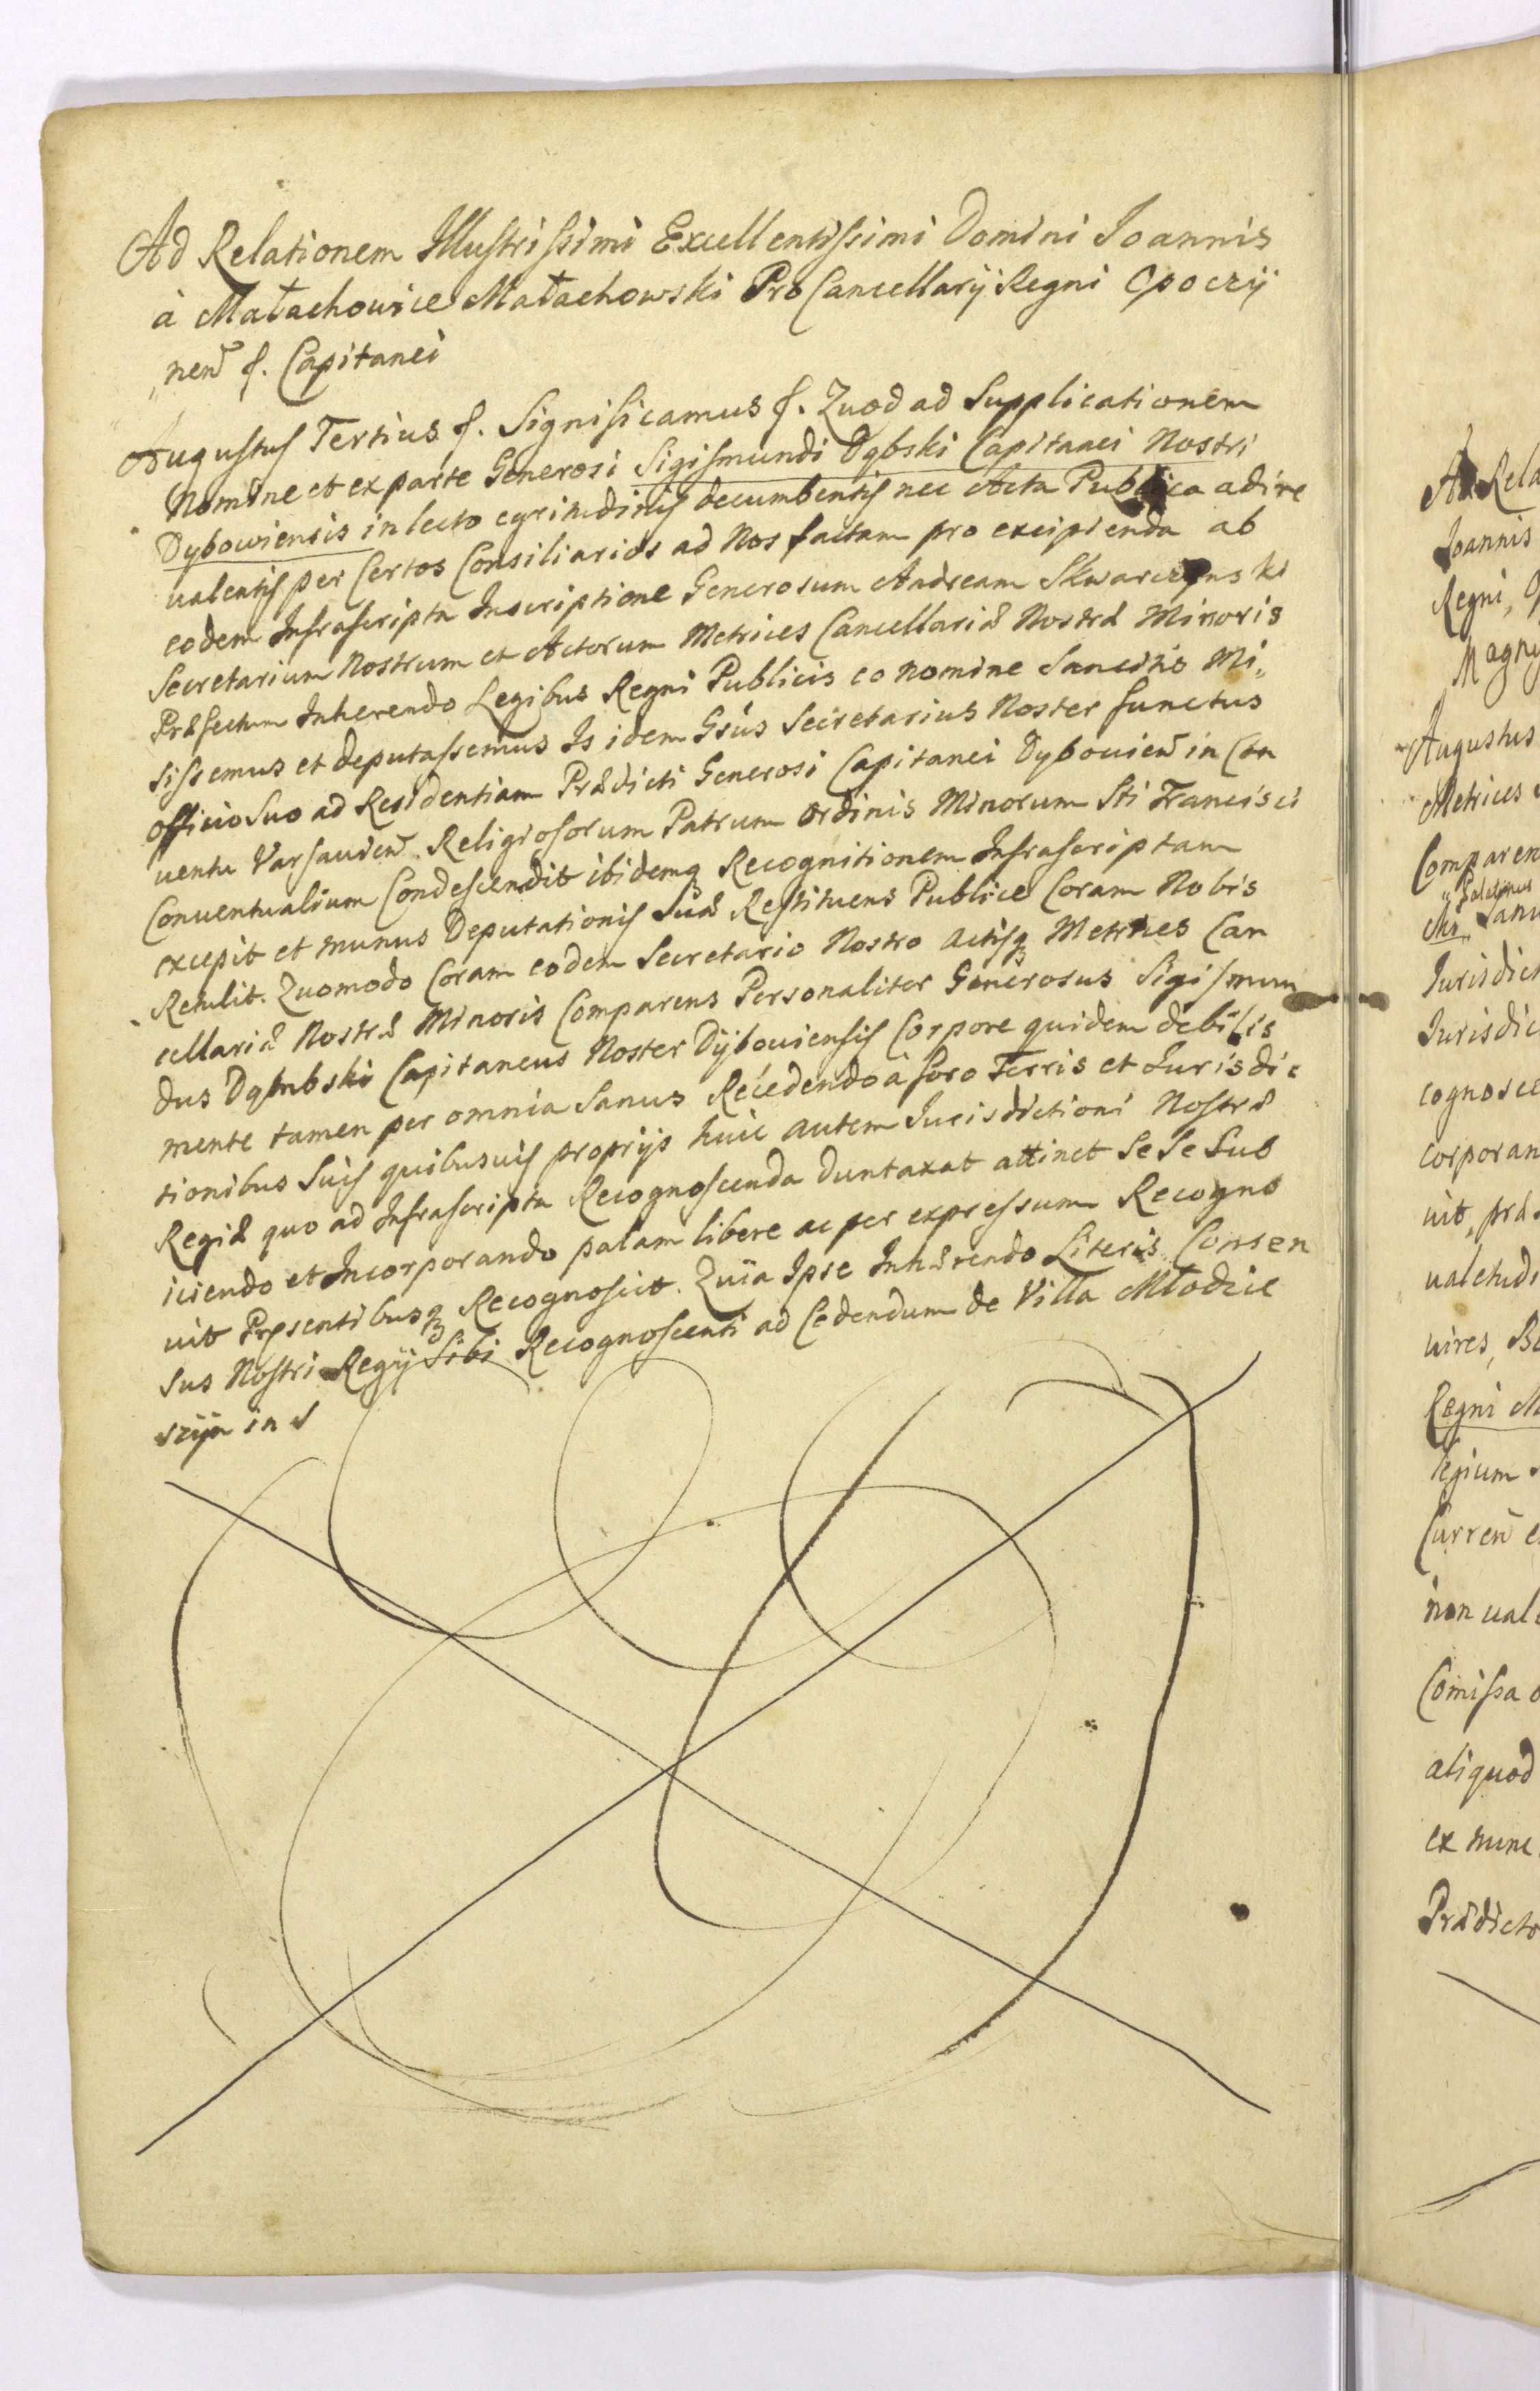 Ad Relationem Illustrissimi Excellentissimi Domini Ioannis
à Małachowice Małachowski ProCancellarij Regni Opoczÿ
„nen̄ &. Capitanei
Augustus Tertius &. Significamus &. Quod ad Supplicationem
Nomine et ex parte Generosi Sigismundi Dąbski Capitanei Nostri
Dybowiensis in lecto egritudinis decumbentis nec Acta Publica adire
valentis per Certos Consiliarios ad Nos factam pro excipienda ab
eodem Infrascripta Inscriptione Generosum Andream Skwarczynski
Secretarium Nostrum et Actorum Metrices Cancellariæ Nostræ Minoris
Præfectum Inherendo Legibus Regni Publicis eo nomine Sancitis Mi„
sissemus et deputassemus Is idem Gsūs Secretarius Noster functus
officio Suo ad Residentiam Prædicti Generosi Capitanei Dybovien̄ in Con
ventu Varsavien̄ Religiosorum Patrum Ordinis Minorum Sti Francisci
Conventualium Condescendit ibidemq3 Recognitionem Infrascriptam
excepit et munus Deputationis Suæ Restituens Publice Coram Nobis
Retulit. Quomodo Coram eodem Secretario Nostro Actisq3 Metrices Can
cellariæ Nostræ Minoris Comparens Personaliter Generosus Sigismun
dus Dąmbski Capitaneus Noster Dÿboviensis Corpore quidem debilis
mente tamen per omnia Sanus Recedendo à foro Terris et Iurisdic
tionibus Suis quibusvis proprijs huic autem Iurisdictioni Nostræ
Regiæ quo ad Infrascripta Recognoscenda duntaxat attinet Se Se Sub
iiciendo et Incorporando palam libere ac per expressum Recogno
vit Pręsentibusq3 Recognoscit. Quia Ipse Inhærendo Literis Consen
sus Nostri Regÿ Sibi Recognoscenti ad Cedendum de Villa Młodzie
szÿn in S
Ad Rela
Ioannis
Regni,
Magn
Augustus
Metrices
Comparen
Palatinus
Iurisdict
Iurisdic
cognosce
corporan
vit, præ
valetudi
vires,
Regni
legium
Curren̄
non vale
Com̄issa
aliquod
ex nunc
Prædicto